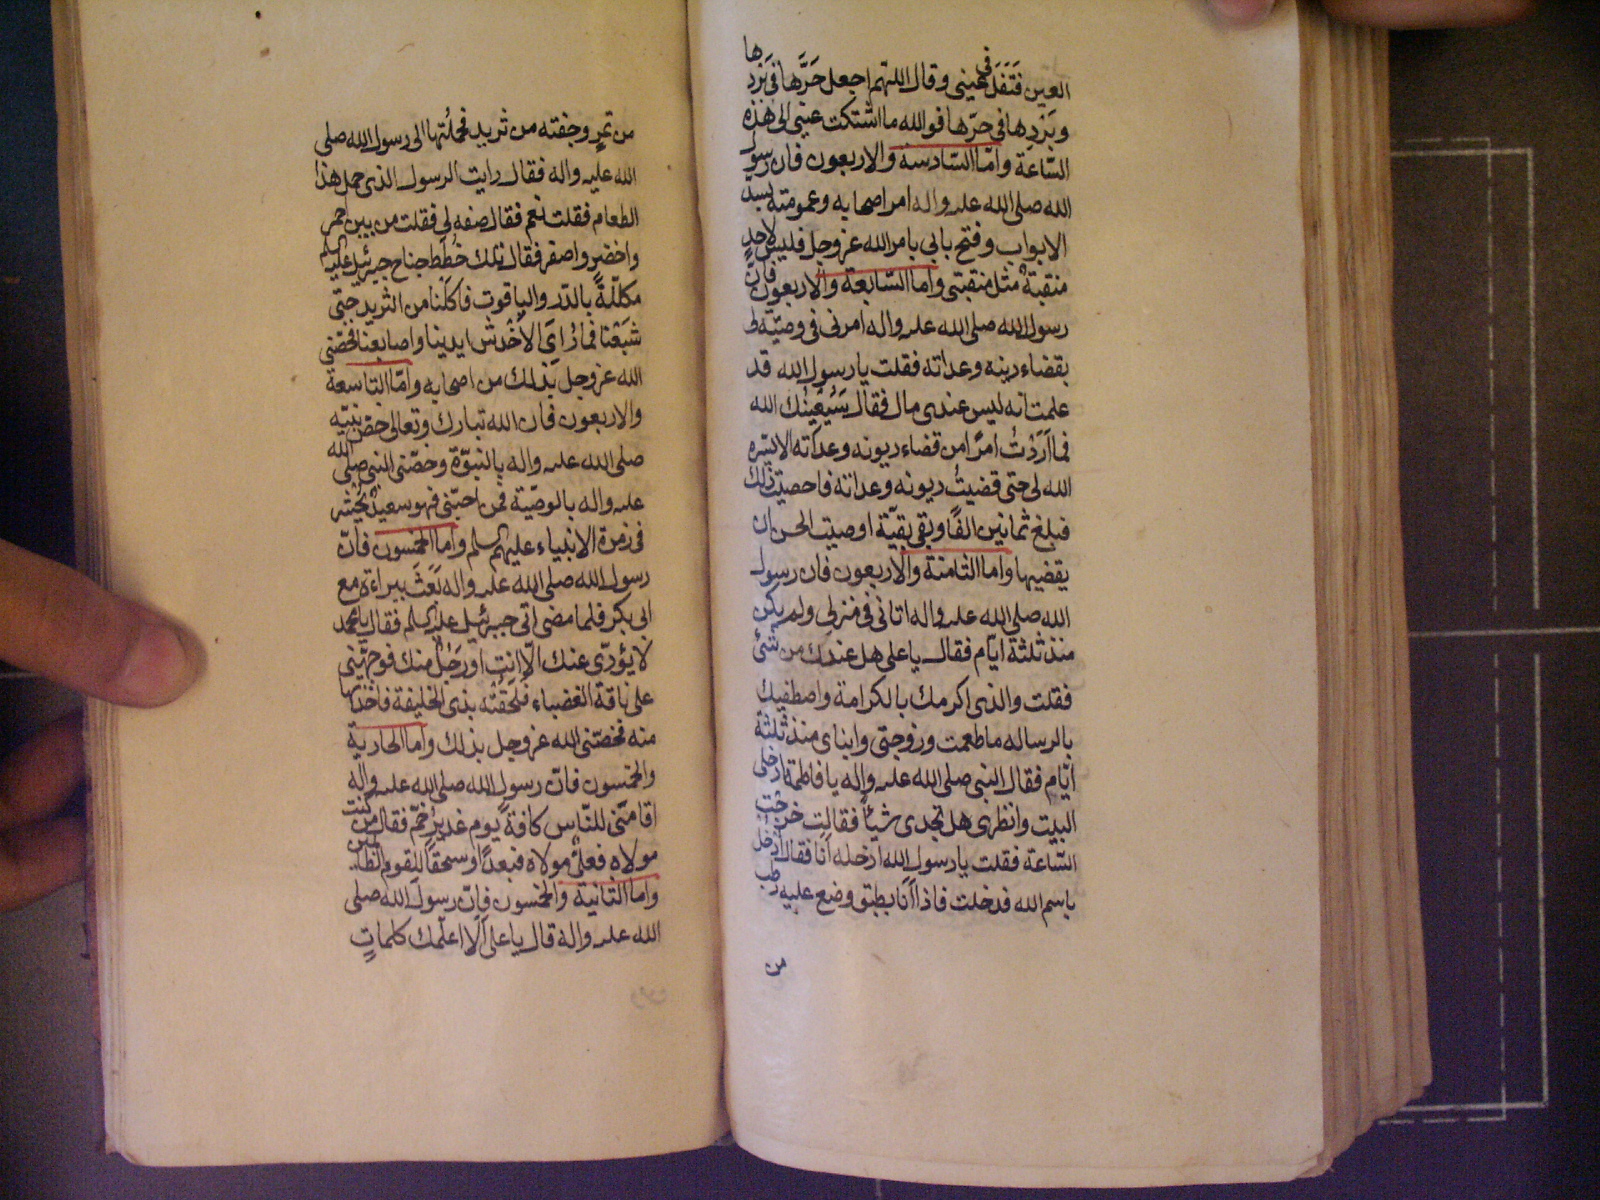 العين فتفل في عيني وقال اللهم اجعل حَرَّها في بَردها
وبَردِها في حرّها فوالله ما اشتكت عيني الى هذه
السّاعة وامّا السّادسة والاربعون فان رسول
الله صلى الله عليه واله امر اصحابه وعمومته بسد
الابواب وفتح بابي بامر الله عز وجل فليس لاحدٍ
منقبةٌ مثل منقبتي واما السّابعة والاربعون فانّ
رسول الله صلى الله عليه واله امرني في وصيّته
بقضاء دينه وعداته فقلت يا رسول الله قد
علمت انه ليس عندي مال فقال سَيُعينُك الله
فما اَرَدْتُ امرًا من قضاء ديونه وعداته الا يسّره
الله لي حتى قضيتُ ديونه وعداته فاحصيت ذلك
فبلغ ثمانين الفًا وبقي بقيّة اوصيت الحسن ان
يقضيها واما الثامنة والاربعون فان رسول
الله صلى الله عليه واله اتاني في منزلي ولم يكن
منذ ثلثة ايّام فقال يا علي هل عندك من شئ
فقلت والذي اكرمك بالكرامة واصطفيك
بالرساله ما طعمت وزوجتي وابناي منذ ثلثة
ايّام فقال النبي صلى الله عليه واله يا فاطمة ادخلي
البيت وانظري هل تجدي شيئًا فقالت خرجت
السّاعة فقلت يا رسول الله ادخله اَنا فقال ادخل
باسم الله فدخلت فاذا اَنَا بطبق وضع عليه رطب
من
من تمرٍ وجفنه من ثريد فحملتها الى رسول الله صلى
الله عليه واله فقال رايت الرسول الذي حمل هذا
الطعام فقلت نعم فقال صفه لي فقلت من بين احمر
واخضر واصفر فقال تلك خُطَط جناح جبرئيل عليه السلم
مكلّلةً بالدّر والياقوت فاكلنا من الثريد حتى
شَبَعْنا فما رُاىَ الا خُدش ايدينا واصابعنا فخصّني
الله عز وجل بذلك من اصحابه وامّا التاسعة
والاربعون فان الله تبارك وتعالى خصّ نبيّه
صلى الله عليه واله بالنبوّة وخصّني النبي صلى الله
عليه واله بالوصيّة فمن احبّني فهو سعيدٌ يُحْشَر
في زمرة الانبياء عليهم السلم واما الخمسون فانّ
رسول الله صلى الله عليه واله بَعَثَ ببراءة مع
ابي بكر فلما مضى اتى جبرئيل عليه السلم فقال يا محمد
لا يؤدّي عنك الّا انت او رَجُلٌ منك فوجّهني
على ناقة الغضباء فلَحَقْتُه بذي الخليفة فاخذتها
منه فخصّني الله عز وجل بذلك واما الحادية
والخمسون فانّ رسول الله صلى الله عليه واله
اقامني للنّاس كافةً يوم غدير خمّ فقال من كنت
مولاه فعليٌّ مولاه فبعدًا وسحقًا للقوم الظالمين
واما الثانية والخمسون فانّ رسول الله صلى
الله عليه واله قال يا علي اَلَا اعلّمك كلماتٍ